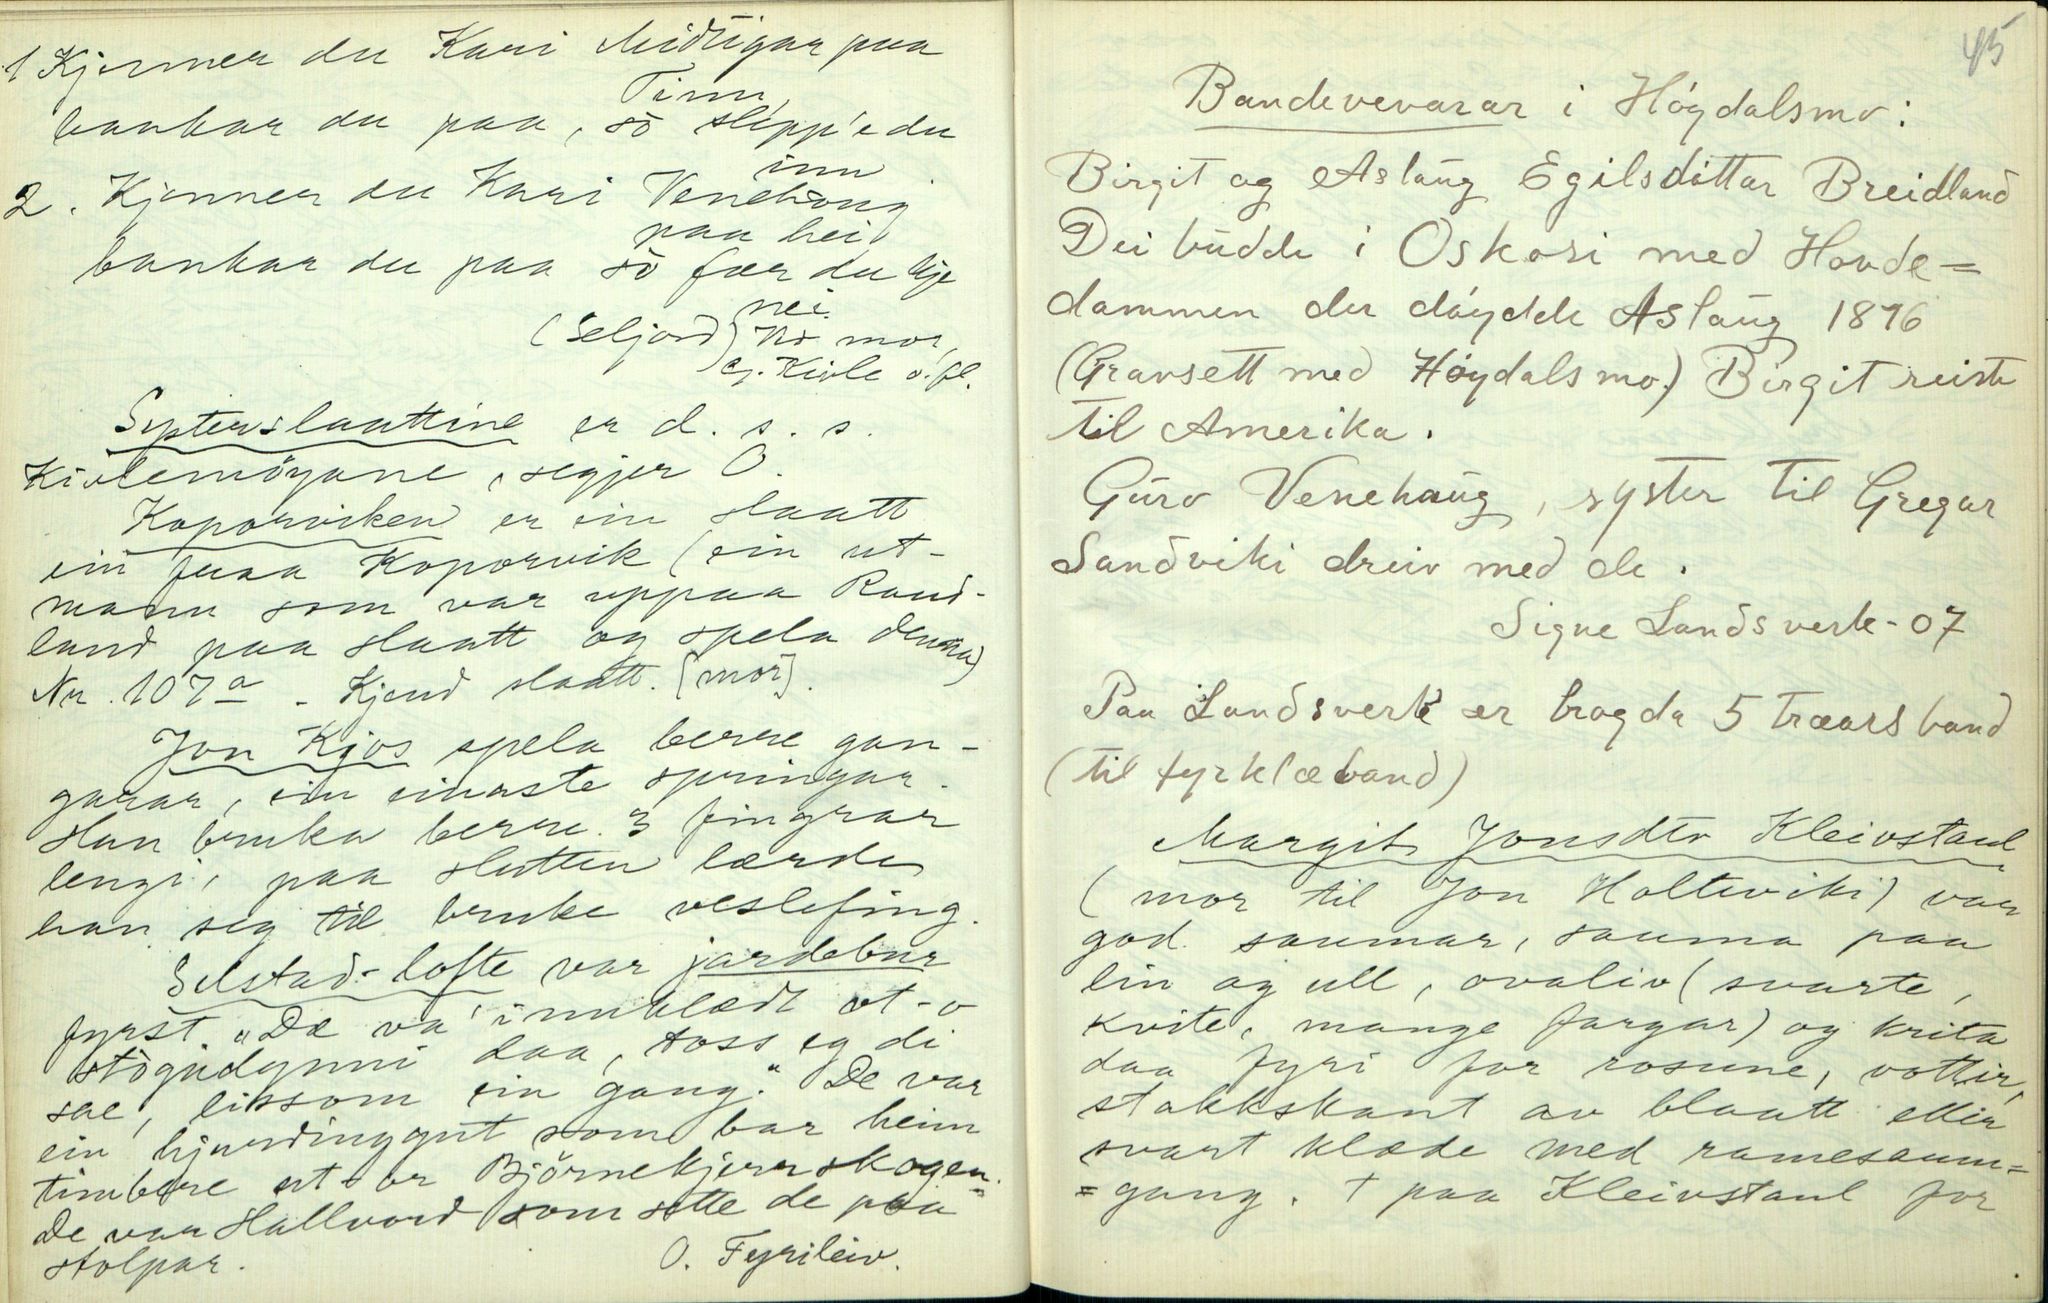 1 Kjenner du Kari Midtigar paa
Tinn,
bankar du paa, so slepp'e du
inn
2. Kjenner du Kari Venehaug
paa hei
bankar du paa so fær du kje
nei.
(Seljord) Ho mor,
Cg. Kivle o. fl.
Systerslaattine er d. s. s.
Kivlemöyane, segjer O.
Koporviken er ein slaatt
ein fraa Koporvik (ein ut-
mann som var uppaa Raud-
land paa slaatt og spela denna)
Nr. 107a - Kjend slaatt. [mor].
Jon Kjos spela berre gan-
garar, ein einaste springar.
Han bruka berre 3 fingrar
lengi, paa slutten lærde
han seg til bruke veslefing.
Selstad-lofte var jardebur
fyrst. "Dæ va' innklædt ut-o
stögudynni daa, toss eg di
sae, lissom ein gang." De var
ein hjuringgut som bar heim
timbere ut-or Björnekjerrskogen.
De var Hallvord som sette de paa
stolpar.
O. Fyrileiv.
45
Bandevevarar i Höydalsmo:
Birgit og Aslaug Egilsdöttar Breidland
Dei budde i Oskosi med Hovde=
dammen der döydde Aslaug 1896
(Gravsett med Höydalsmo.) Birgit reiste
til Amerika.
Guro Venehaug, syster til Gregar
Sandviki dreiv med de.
Signe Landsverk-07
Paa Landsverk er bragda 5 træarsband
(til fyrklæband)
Margit Jonsdtr Kleivstaul
(mor til Jon Holteviki) var
god saumar, sauma paa
lin og ull, ovaliv (svarte,
kvite, mange fargar) og krita
daa fyri for rosune, vottir,
stakkskant av blaatt eller
svart klæde med ramesaum=
=gang. † paa Kleivstaul for